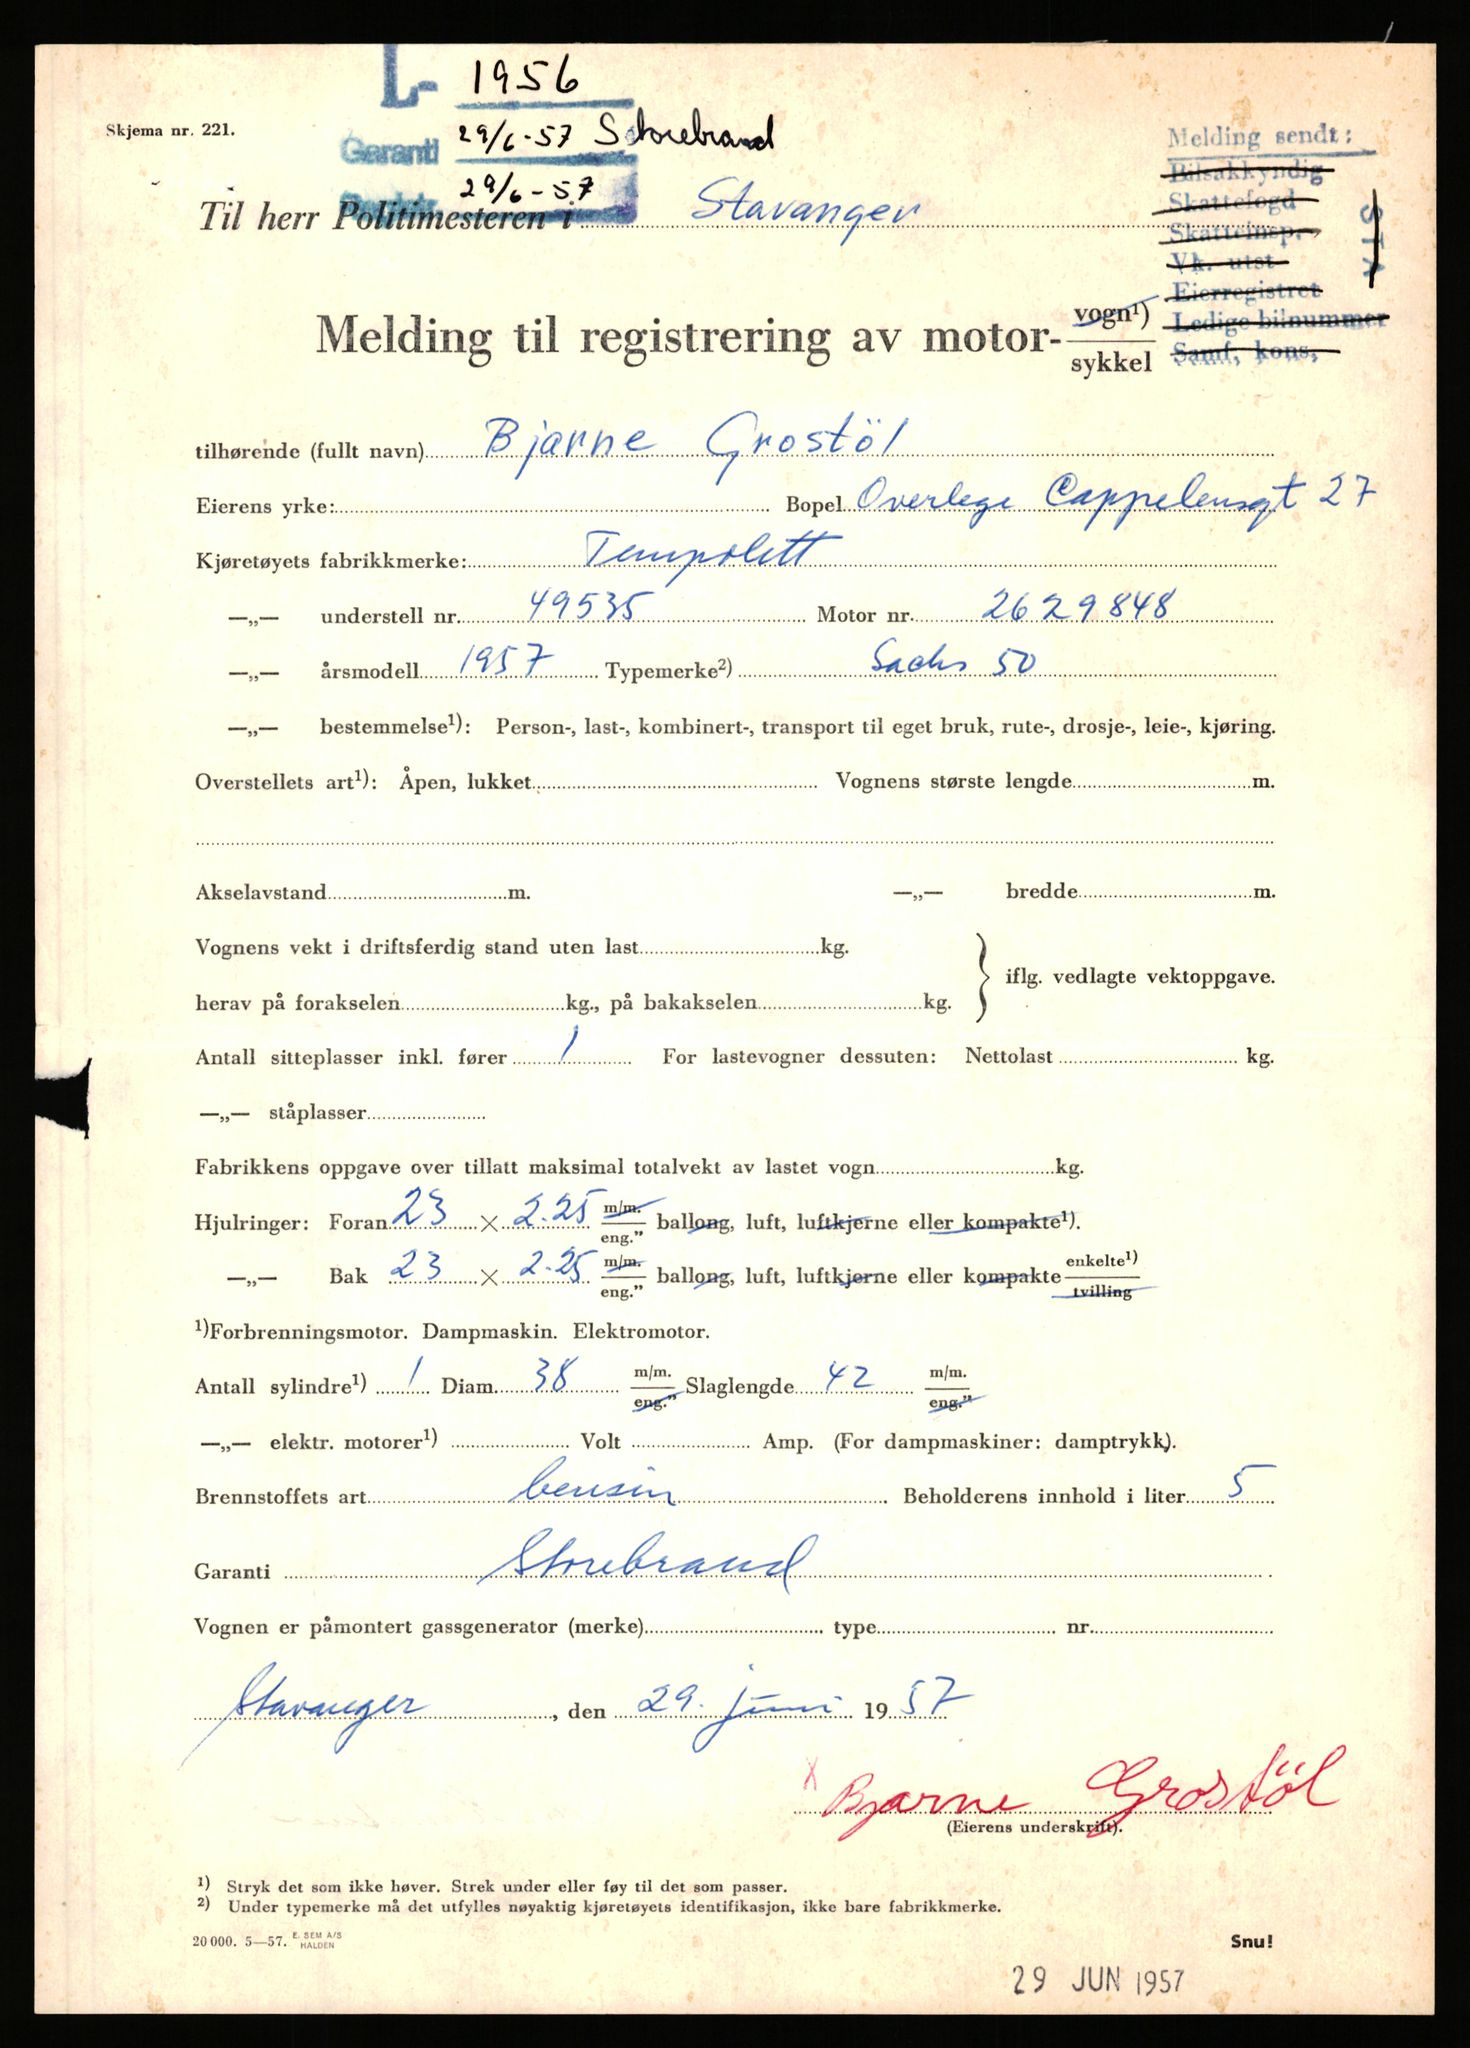 L- 1956
Skjema nr. 221.
Garanti 29/6-57 Storebrand
29/6-57
Til herr Politimesteren i Stavanger
Melding sendt:
Bilsakkyndig
Skattefogd
Skatteinsp.
Vk. utst
Eierregistret
Ledige bilnummer
Samf, kons,
STA
Melding til registrering av motor- vogn¹)
sykkel
tilhørende (fullt navn) Bjarne Grostöl
Eierens yrke: Bopel Overlege Cappelensgt 27
Kjøretøyets fabrikkmerke: Tempolett
—„— understell nr. 49535 Motor nr. 2629848
—„— årsmodell 1957 Typemerke²) Sachs 50
—„— bestemmelse¹): Person-, last-, kombinert-, transport til eget bruk, rute-, drosje-, leie-, kjøring.
Overstellets art¹): Åpen, lukket Vognens største lengde m.
Akselavstand m. —„— bredde m.
Vognens vekt i driftsferdig stand uten last kg.
iflg. vedlagte vektoppgave.
herav på forakselen kg., på bakakselen kg.
Antall sitteplasser inkl. fører 1 For lastevogner dessuten: Nettolast kg.
—„— ståplasser
Fabrikkens oppgave over tillatt maksimal totalvekt av lastet vogn kg.
Hjulringer: Foran 23 × 2.25 m/m. eng.” ballong, luft, luftkjerne eller kompakte¹).
—„— Bak 23 × 2.25 m/m. eng.” ballong, luft, luftkjerne eller kompakte enkelte¹) tvilling
¹)Forbrenningsmotor. Dampmaskin. Elektromotor.
Antall sylindre¹) 1 Diam. 38 m/m. eng.” Slaglengde 42 m/m. eng.”
—„— elektr. motorer¹) Volt Amp. (For dampmaskiner: damptrykk).
Brennstoffets art bensin Beholderens innhold i liter 5
Garanti Storebrand
Vognen er påmontert gassgenerator (merke) type nr.
Stavanger, den 29. juni 1957
x Bjarne Grostöl
(Eierens underskrift).
¹) Stryk det som ikke høver. Strek under eller føy til det som passer.
²) Under typemerke må det utfylles nøyaktig kjøretøyets identifikasjon, ikke bare fabrikkmerke.
20 000. 5—57. E. SEM A/S HALDEN
Snu!
29 JUN 1957